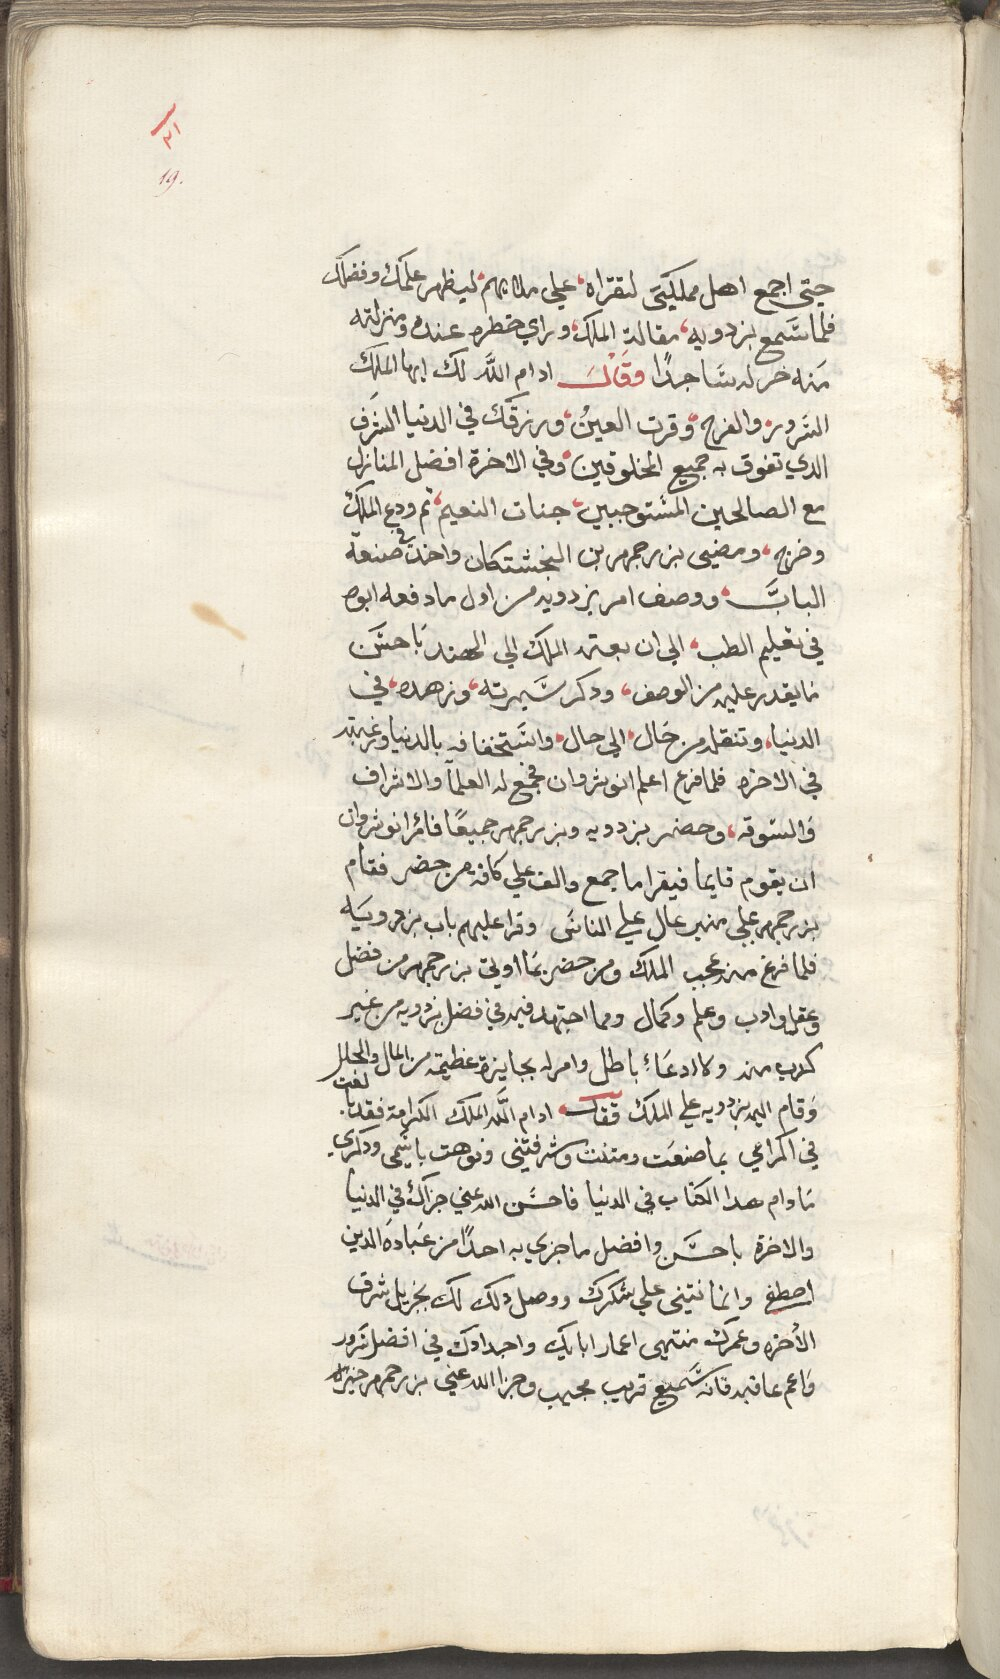 ٢١
19.
حتي اجمع اهل مملكتي لتقراه علي ملايهم ليظهر علمك وفضلك
فلما سمع بزدويه مقالة الملك وراي خطره عنده ومنزلته
منه خر له ساجدًا وقال ادام الله لك ايها الملك
السرور والفرح وقرت العين ورزقك في الدنيا الشرف
الدي تفوق به جميع المخلوقين وفي الاخرة افضل المنازل
مع الصالحين المستوجبين جنات النعيم ثم ودع الملك
وخرج ومضي بزرجمهر بن البخشتكان واخد في صنعة
الباب ووصف امر بزدويه من اول ما دفعه ابوه
في تعليم الطب الي ان بعثه الملك الي الهند باحسن
ما يقدر عليه من الوصف ودكر سيرته وزهده في
الدنيا وتنقله من حال الي حال واستخفافه بالدنيا ورغبته
في الاخره فلما فرغ اعلم انوشروان فجمع له العلمآ والاشراف
والسوقه وحضر بزدويه وبزرجمهر جميعًا فامر انوشروان
ان يقوم قايما فيقرا ما جمع والف علي كافة من حضر فقام
بزرجمهر علي منبر عال علي الناس وقرا عليهم باب بزدويه
فلما فرغ منه عجب الملك ومن حضر بما اوتي بزرجمهر من فضل
وعقل وادب وعلم وكمال ومما اجتهد فيه في فضل بزدويه من غير
كدب منه ولا ادعاء باطل وامر له بجايزة عظيمة من المال والحلل
وقام اليه بزدويه علي الملك فقال ادام الله الملك الكرامة فقد بالغت
في اكرامي بما صنعت وشرفتني ونوهت باسمي ودكري
ما دام هدا الكتاب في الدنيا فاحسن الله عني جزاك في الدنيا
والاخرة باحسن وافضل ما جزي به احدًا من عباده الدين
اصطفي واعانني علي شكرك ووصل دلك لك بجزيل شرف
الاخره وعمرك منتهي اعمار ابايك واجدادك في افضل سرور
وانعم عاقبه فانه سميع قريب مجيب وجزا الله عني بزرجمهر خيرًا